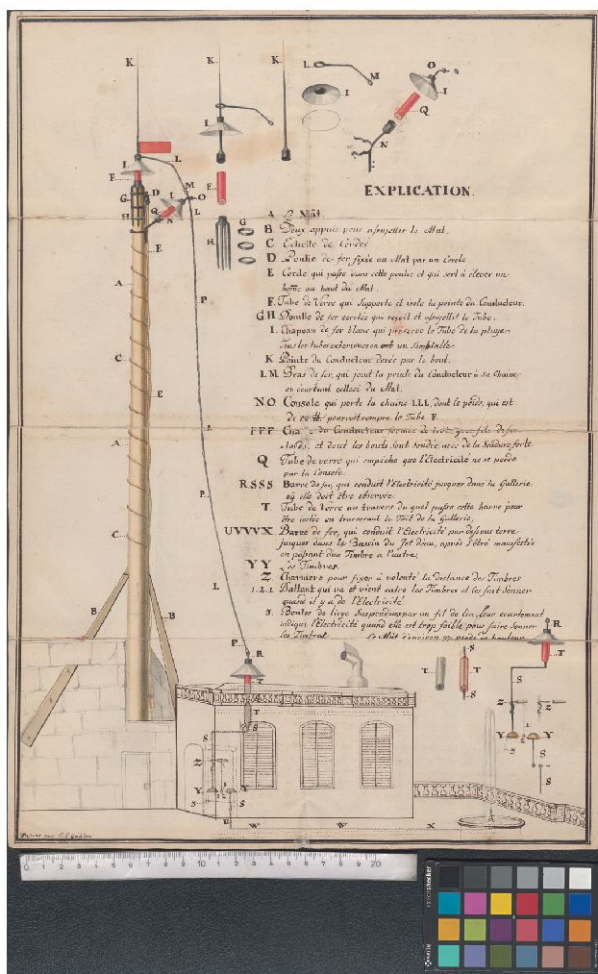 EXPLICATION.
A Le Mât.
B Deux appuis pour assujettir le Mat.
C Echelle de Cordes
D Poulie de fer fixée au Mat par un Cercle
E Corde qui passe dans cette poulie et qui sert à élever un
homme au haut du Mat.
F. Tube de Verre qui Supporte et isole la pointe du Conducteur.
GH Douille de fer cerclée qui reçoit et assujettit le Tube.
I. Chapeau de fer blanc qui préserve le Tube de la pluye
Tous les tubes exterieurs en ont un Semblable.
K Pointe du Conducteur dorée par le bout.
LM Bras de fer, qui joint la pointe du Conducteur à sa Chaine,
en écartant celle ci du Mat.
NO Console qui porte la chaine LLL, dont le poids, qui est
de pourroit rompre le Tube F.
PPP Chaine du Conducteur formée de trois gros fils de fer
et dont les bouts sont soudés avec de la Soudure forte
Q Tube de verre qui empêche que l'Electricité ne se perde
par la Console.
RSSS Barre de fer qui conduit l'Electricité jusques dans la Gallerie,
où elle doit être observée.
T Tube de Verre au travers du quel passe cette barre pour
être isolée en traversant le Toit de la Gallerie,
UVVVX Barre de fer, qui conduit l'Electricité par dessous terre
jusques dans le Bassin du Jet d'eau, après s'être manifestée
en passant d'un Timbre a l'autre;
YY Les Timbres.
Z Charniere pour fixer à volonté la distance des Timbres
1.2.1. Battant qui va et vient entre les Timbres et les fait Sonner
quand il y a de l'Electricité
3. Boules de liège Suspendues par un fil de lin, leur ecartement
indique l'Electricité quand elle est trop foible pour faire Sonner
les Timbres. Le Mât d'environ pieds de hauteur
K
K
K
L
M
O
I
I
I
Q
N
L
F
D
G
H
M
O
Q
N
L
F
G
H
E
A
P
C
E
L
A
P
C
L
B
B
P
R
T
T
S
S
S
Z
Z
Y
Y
3
S
U
W
W
X
T
S
T
S
R
T
S
Z
Z
Y
Y
3
S
S
0
10
20
colorchecker